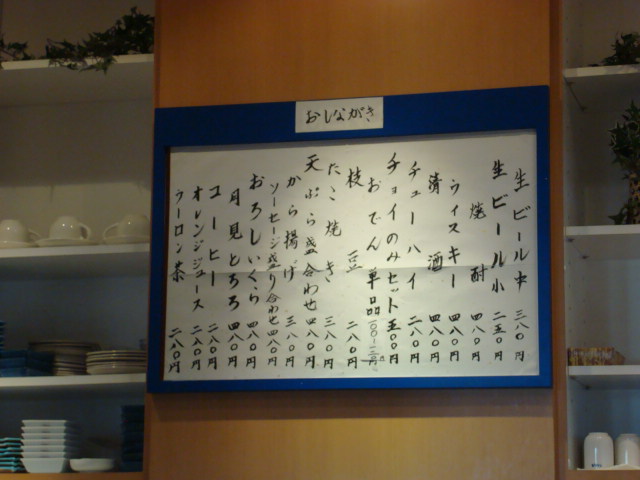 おしながき
生ビール中 三八〇円
生ビール小 二五〇円
焼酎 四八〇円
ウィスキー 四八〇円
清酒 四八〇円
チューハイ 四八〇円
チョイのみセット 五〇〇円
おでん単品 一〇〇〜二三〇円
枝豆 二八〇円
たこ焼き 三八〇円
天ぷら盛合わせ 四八〇円
から揚げ 三八〇円
ソーセージ盛り合わせ 四八〇円
おろしいくら 四八〇円
月見とろろ 四八〇円
コーヒー 二八〇円
オレンジジュース 二八〇円
ウーロン茶 二八〇円